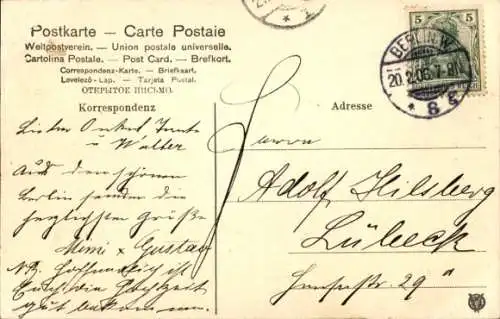 Postkarte — Carte Postale
Weltpostverein. — Union postale universelle.
Cartolina Postale. — Post Card. — Brefkort.
Correspondenz-Karte. — Briefkaart.
Levelező-Lap. — Tarjeta Postal.
ОТКРЫТОЕ ПИСЬМО.
Korrespondenz
Adresse
5 5
BERLIN W.
20.2.06. 7-8N.
* 8 g
Lieber Onkel Tante
u Walter
Aus dem schönen
Berlin senden die
herzlichsten Grüße
Mimi & Gustav
N.B. Hoffentlich ist
Euch die Hochzeit
gut bekommen.
Herrn
Adolf Hilsberg
Lübeck
Hansastr. 29 a